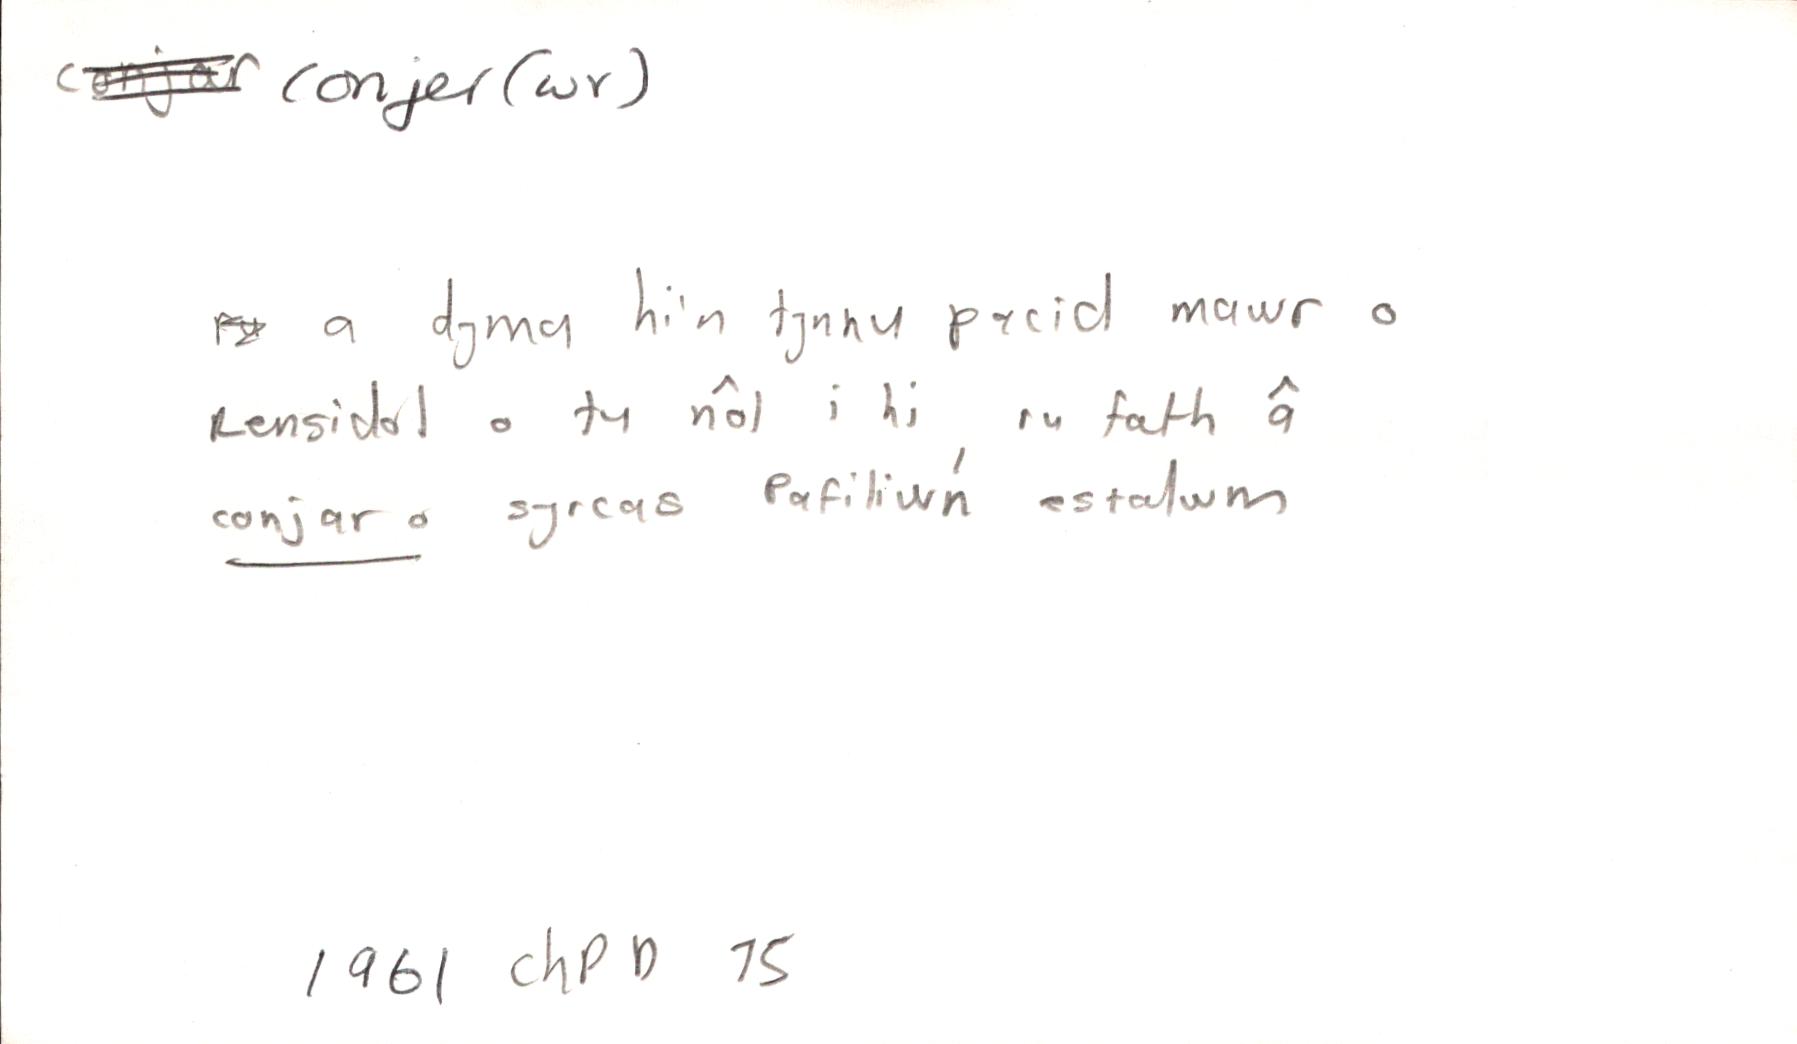 conjar conjer(wr)
a dyma hi'n tynnu pacid mawr o
Rensidol o tu nôl i hi, ru fath â
conjar o syrcas Pafiliwn estalwm
1961 ChPD 75